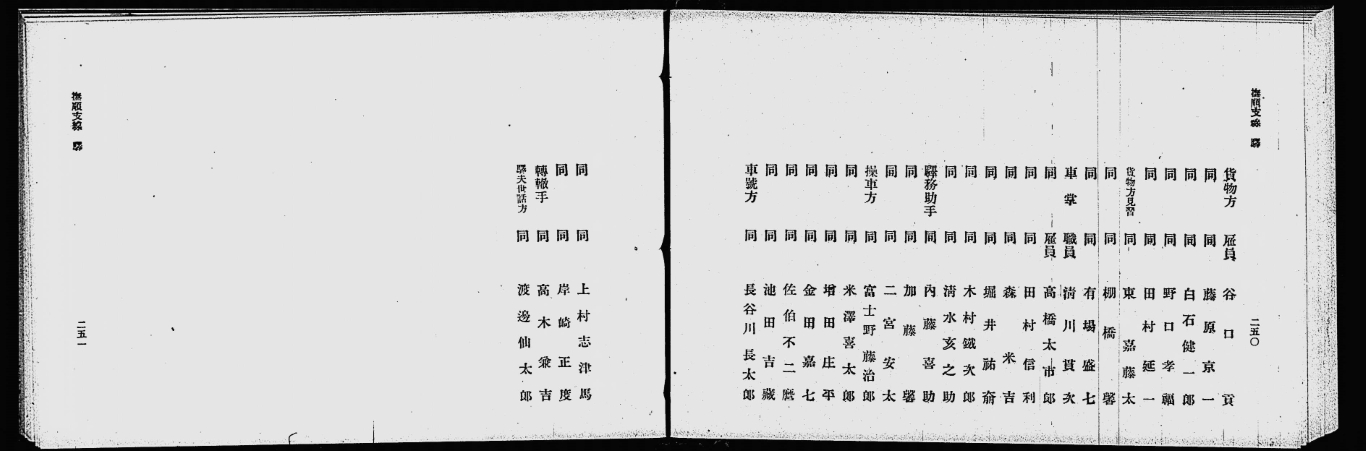 撫順支線 驛
二五〇
貨物方 雇員 谷口貢
同 同 藤原京一
同 同 白石健一郎
同 同 野口孝福
同 同 田村延一
貨物方見習 同 東嘉藤太
同 同 棚橋馨
同 同 有場盛七
車掌 職員 淸川貫次
同 雇員 高橋太市郎
同 同 田村信利
同 同 森米吉
同 同 堀井祐齋
同 同 木村鐵次郎
同 同 淸水亥之助
驛務助手 同 內藤喜助
同 同 加藤馨
同 同 二宮安太
操車方 同 富士野藤治郎
同 同 米澤喜太郎
同 同 增田庄平
同 同 金田嘉七
同 同 佐伯不二麿
同 同 池田吉藏
車號方 同 長谷川長太郎
同 同 上村志津馬
同 同 岸崎正度
轉轍手 同 高木兼吉
驛夫世話方 同 渡邊仙太郎
撫順支線 驛
二五一